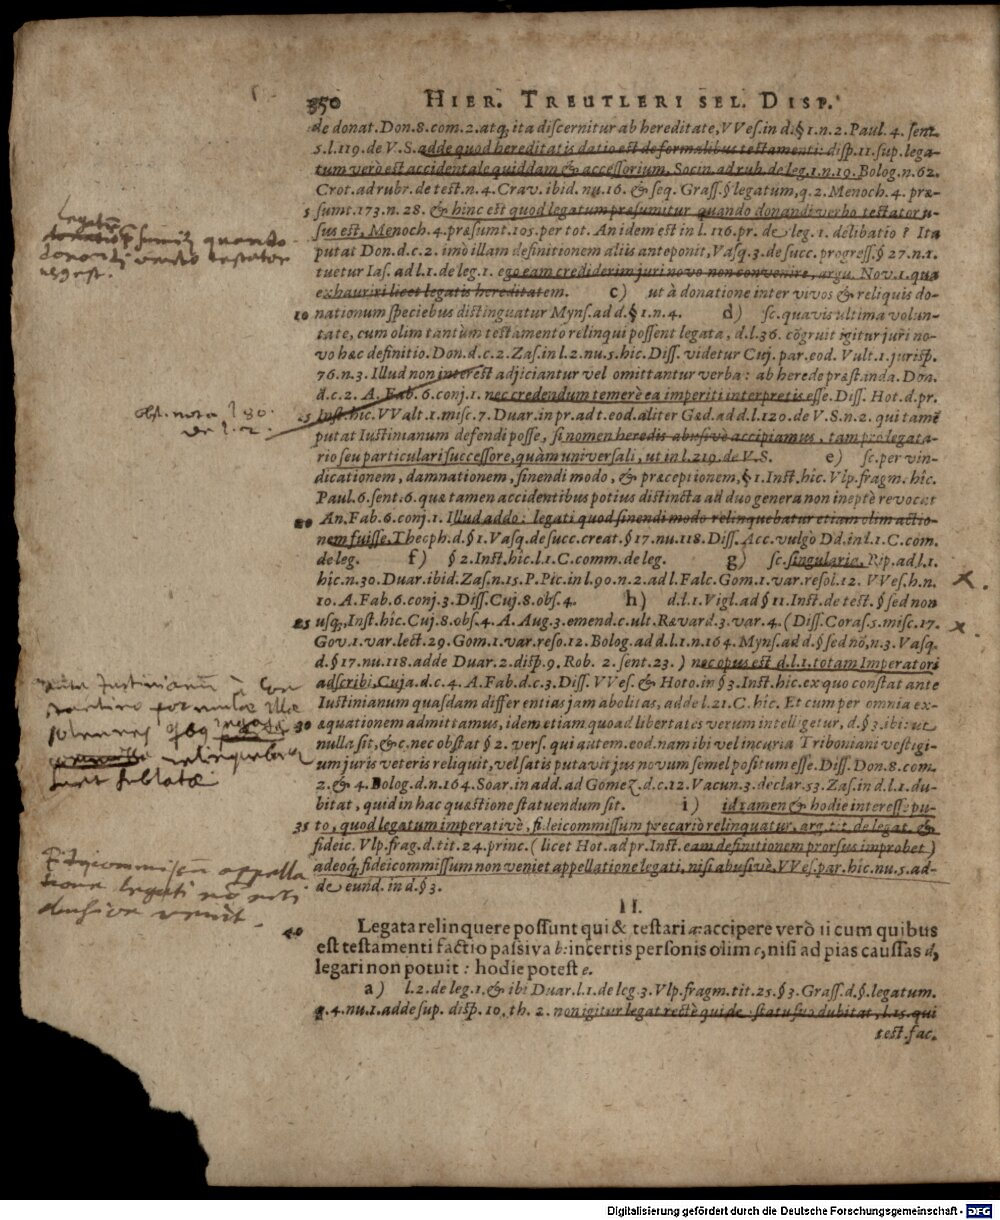 350 HIER. TREUTLERI SEL. DISP.
de donat. Don. 8. com. 2. atq, ita discernitur ab hereditate, VVes. in d. § 1. n. 2. Paul. 4. sent.
5. l. 119. de V. S. adde quod hereditatis datio est de formalibus testamenti: disp. 11. sup. lega-
tum verò est accidentale quiddam & accessorium. Socin. ad rub. de leg. 1. n. 19. Bolog. n. 62.
Crot. ad rubr. de test. n. 4. Crav. ibid. nu. 16. & seq. Grass. § legatum, q. 2. Menoch. 4. præ-
5 sumt. 173. n. 28. & hinc est quod legatum præsumitur quando donandi verbo testator u-
sus est, Menoch. 4. præsumt. 105. per tot. An idem est in l. 116. pr. de leg. 1. delibatio? Ita
putat Don. d. c. 2. imò illam definitionem aliis anteponit, Vasq. 3. de succ. progress. § 27. n. 1.
tuetur Ias. ad l. 1. de leg. 1. ego eam crediderim juri novo non convenire, argu. Nov. 1. qua
exhauriri licet legatis hereditatem. c) ut à donatione inter vivos & reliquis do-
10 nationum speciebus distinguatur Myns. ad d. § 1. n. 4. d) sc. quavis ultima volun-
tate, cum olim tantùm testamento relinqui possent legata, d. l. 36. cōgruit igitur juri no-
vo hæc definitio. Don. d. c. 2. Zas. in l. 2. nu. 5. hic. Diss. videtur Cuj. par. eod. Vult. 1. jurisp.
76. n. 3. Illud non interest adjiciantur vel omittantur verba: ab herede præstanda. Don.
d. c. 2. A. Fab. 6. conj. 1. nec credendum temerè ea imperiti interpretis esse. Diss. Hot. d. pr.
15 Inst. hic. VValt. 1. misc. 7. Duar. in pr. ad t. eod. aliter Gœd. ad d. l. 120. de V. S. n. 2. qui tamē
putat Iustinianum defendi posse, si nomen heredis abusivè accipiamus, tam pro legata-
rio seu particulari successore, quàm universali, ut in l. 219. de V. S. e) sc. per vin-
dicationem, damnationem, sinendi modo, & præceptionem, § 1. Inst. hic. Vlp. fragm. hîc.
Paul. 6. sent. 6. quæ tamen accidentibus potius distincta ad duo genera non ineptè revocat
20 An. Fab. 6. conj. 1. Illud addo: legati quod sinendi modo relinquebatur etiam olim actio-
nem fuisse. Theoph. d. § 1. Vasq. de succ. creat. § 17. nu. 118. Diss. Acc. vulgò Dd. in l. 1. C. com.
de leg. f) § 2. Inst. hîc. l. 1. C. comm. de leg. g) sc. singularia. Rip. ad l. 1.
hîc. n. 30. Duar. ibid. Zas. n. 15. P. Pic. in l. 90. n. 2. ad l. Falc. Gom. 1. var. resol. 12. VVes. h. n.
10. A. Fab. 6. conj. 3. Diss. Cuj. 8. obs. 4. h) d. l. 1. Vigl. ad § 11. Inst. de test. § sed non
25 usq, Inst. hic. Cuj. 8. obs. 4. A. Aug. 3. emend. c. ult. Rævard. 3. var. 4. (Diss. Coras. 5. misc. 17.
Gov. 1. var. lect. 29. Gom. 1. var. reso. 12. Bolog. ad d. l. 1. n. 164. Myns. ad d. § sed nō, n. 3. Vasq.
d. § 17. nu. 118. adde Duar. 2. disp. 9. Rob. 2. sent. 23.) nec opus est d. l. 1. totam Imperatori
adscribi, Cuja. d. c. 4. A. Fab. d. c. 3. Diss. VVes. & Hoto. in § 3. Inst. hic. ex quo constat ante
Iustinianum quasdam differentias jam abolitas, adde l. 21. C. hic. Et cum per omnia ex-
30 æquationem admittamus, idem etiam quoad libertates verum intelligetur, d. § 3. ibi: ut
nulla sit, &c. nec obstat § 2. vers. qui autem. eod. nam ibi vel incuria Triboniani vestigi-
um juris veteris reliquit, vel satis putavit jus novum semel positum esse. Diss. Don. 8. com.
2. & 4. Bolog. d. n. 164. Soar. in add. ad Gomez. d. c. 12. Vacun. 3. declar. 53. Zas. in d. l. 1. du-
bitat, quid in hac quæstione statuendum sit. i) id tamen & hodie interesse pu-
35 to, quod legatum imperativè, fideicommissum precariò relinquatur, arg. tit. de legat. &
fideic. Vlp. frag. d. tit. 24. princ. (licet Hot. ad pr. Inst. eam definitionem prorsus improbet)
adeoq, fideicommissum non veniet appellatione legati, nisi abusivè, VVes. par. hic. nu. 5. ad-
de eund. in d. § 3.
II.
40 Legata relinquere possunt qui & testari a: accipere verò ii cum quibus
est testamenti factio passiva b: incertis personis olim c, nisi ad pias caussas d,
legari non potuit: hodie potest e.
a) l. 2. de leg. 1. & ibi Duar. l. 1. de leg. 3. Vlp. fragm. tit. 25. § 3. Grass. d. § legatum.
q. 4. nu. 1. adde sup. disp. 10. th. 2. non igitur legat rectè qui de statu suo dubitat, l. 15. qui
test. fac.
Legatū
quando
donandi verbo testator
usus est.
ante Justinianū à Con
stantino formulæ illæ
solennes
sunt sublatæ.
Fideicommissū appella
tione legati nō nisi
abusive venit.
Digitalisierung gefördert durch die Deutsche Forschungsgemeinschaft - DFG